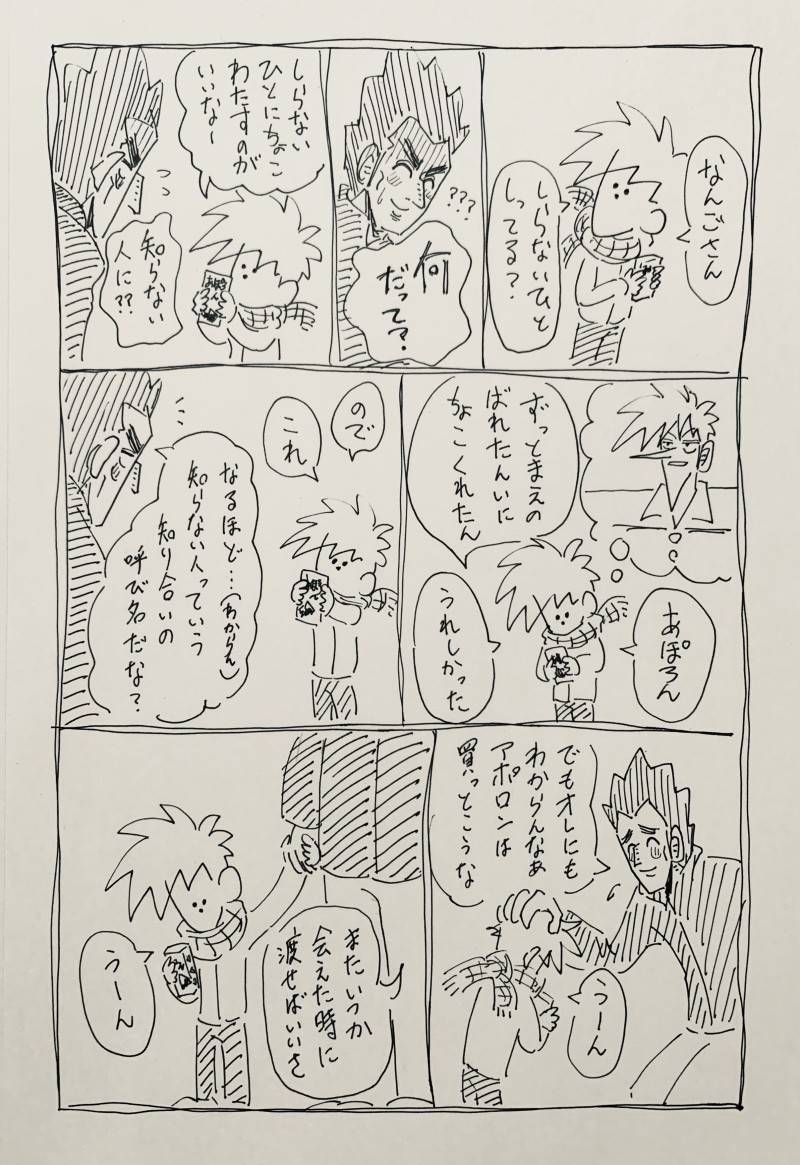 なんごさん
しらないひと
しってる?
???
何
だって?
しらない
ひとにちょこ
わたすのが
いいな〜
知らない
人に??
あぽろん
ずっとまえの
ばれたんいに
ちょこくれたん
うれしかった
ので
これ
なるほど…(わからん)
知らない人っていう
知り合いの
呼び名だな?
でもオレにも
わからんなぁ
アポロンは
買っとこうな
うーん
またいつか
会えた時に
渡せばいいさ
うーん